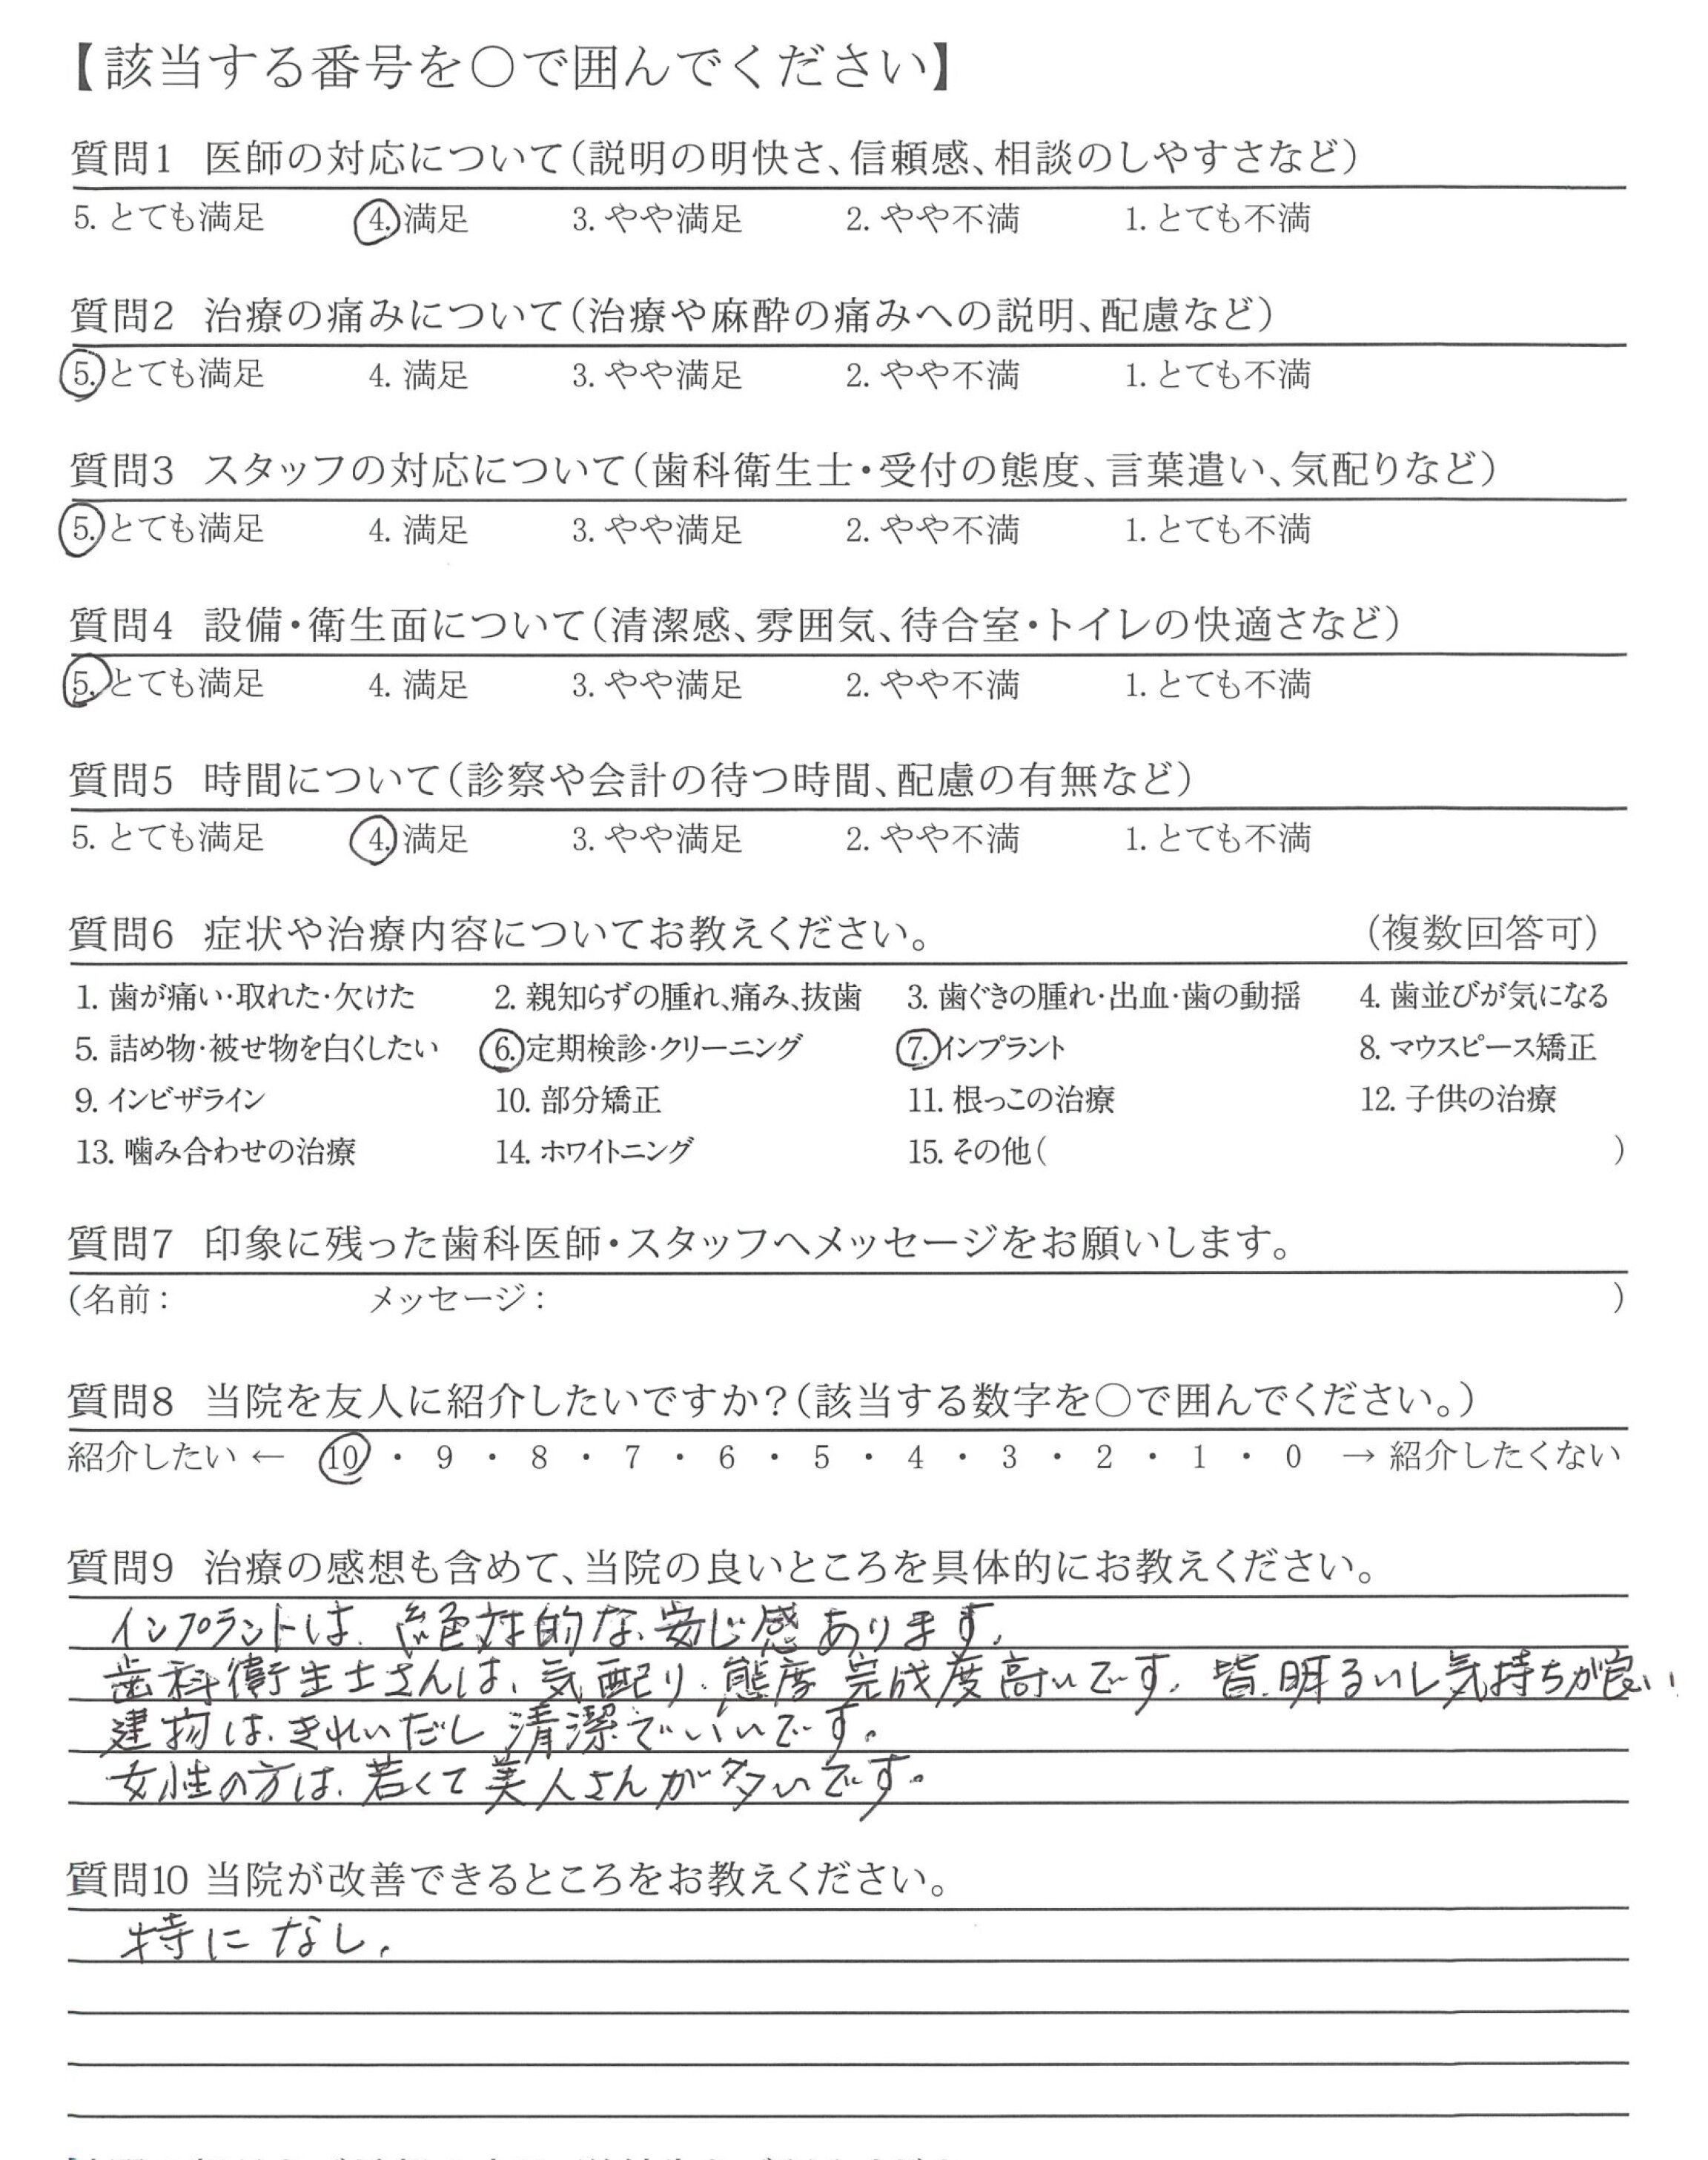 【該当する番号を○で囲んでください】
質問1 医師の対応について(説明の明快さ、信頼感、相談のしやすさなど)
5. とても満足 4. 満足 3. やや満足 2. やや不満 1. とても不満
質問2 治療の痛みについて(治療や麻酔の痛みへの説明、配慮など)
5. とても満足 4. 満足 3. やや満足 2. やや不満 1. とても不満
質問3 スタッフの対応について(歯科衛生士・受付の態度、言葉遣い、気配りなど)
5. とても満足 4. 満足 3. やや満足 2. やや不満 1. とても不満
質問4 設備・衛生面について(清潔感、雰囲気、待合室・トイレの快適さなど)
5. とても満足 4. 満足 3. やや満足 2. やや不満 1. とても不満
質問5 時間について(診察や会計の待つ時間、配慮の有無など)
5. とても満足 4. 満足 3. やや満足 2. やや不満 1. とても不満
質問6 症状や治療内容についてお教えください。 (複数回答可)
1. 歯が痛い・取れた・欠けた 2. 親知らずの腫れ、痛み、抜歯 3. 歯ぐきの腫れ・出血・歯の動揺 4. 歯並びが気になる
5. 詰め物・被せ物を白くしたい 6. 定期検診・クリーニング 7. インプラント 8. マウスピース矯正
9. インビザライン 10. 部分矯正 11. 根っこの治療 12. 子供の治療
13. 噛み合わせの治療 14. ホワイトニング 15. その他( )
質問7 印象に残った歯科医師・スタッフへメッセージをお願いします。
(名前: メッセージ: )
質問8 当院を友人に紹介したいですか?(該当する数字を○で囲んでください。)
紹介したい ← 10 ・ 9 ・ 8 ・ 7 ・ 6 ・ 5 ・ 4 ・ 3 ・ 2 ・ 1 ・ 0 → 紹介したくない
質問9 治療の感想も含めて、当院の良いところを具体的にお教えください。
インプラントは、絶対的な、安心感あります。
歯科衛生士さんは、気配り、態度 完成度高いです。皆、明るいし気持ちが良い
建物は、きれいだし 清潔でいいです。
女性の方は、若くて美人さんが多いです。
質問10 当院が改善できるところをお教えください。
特になし。